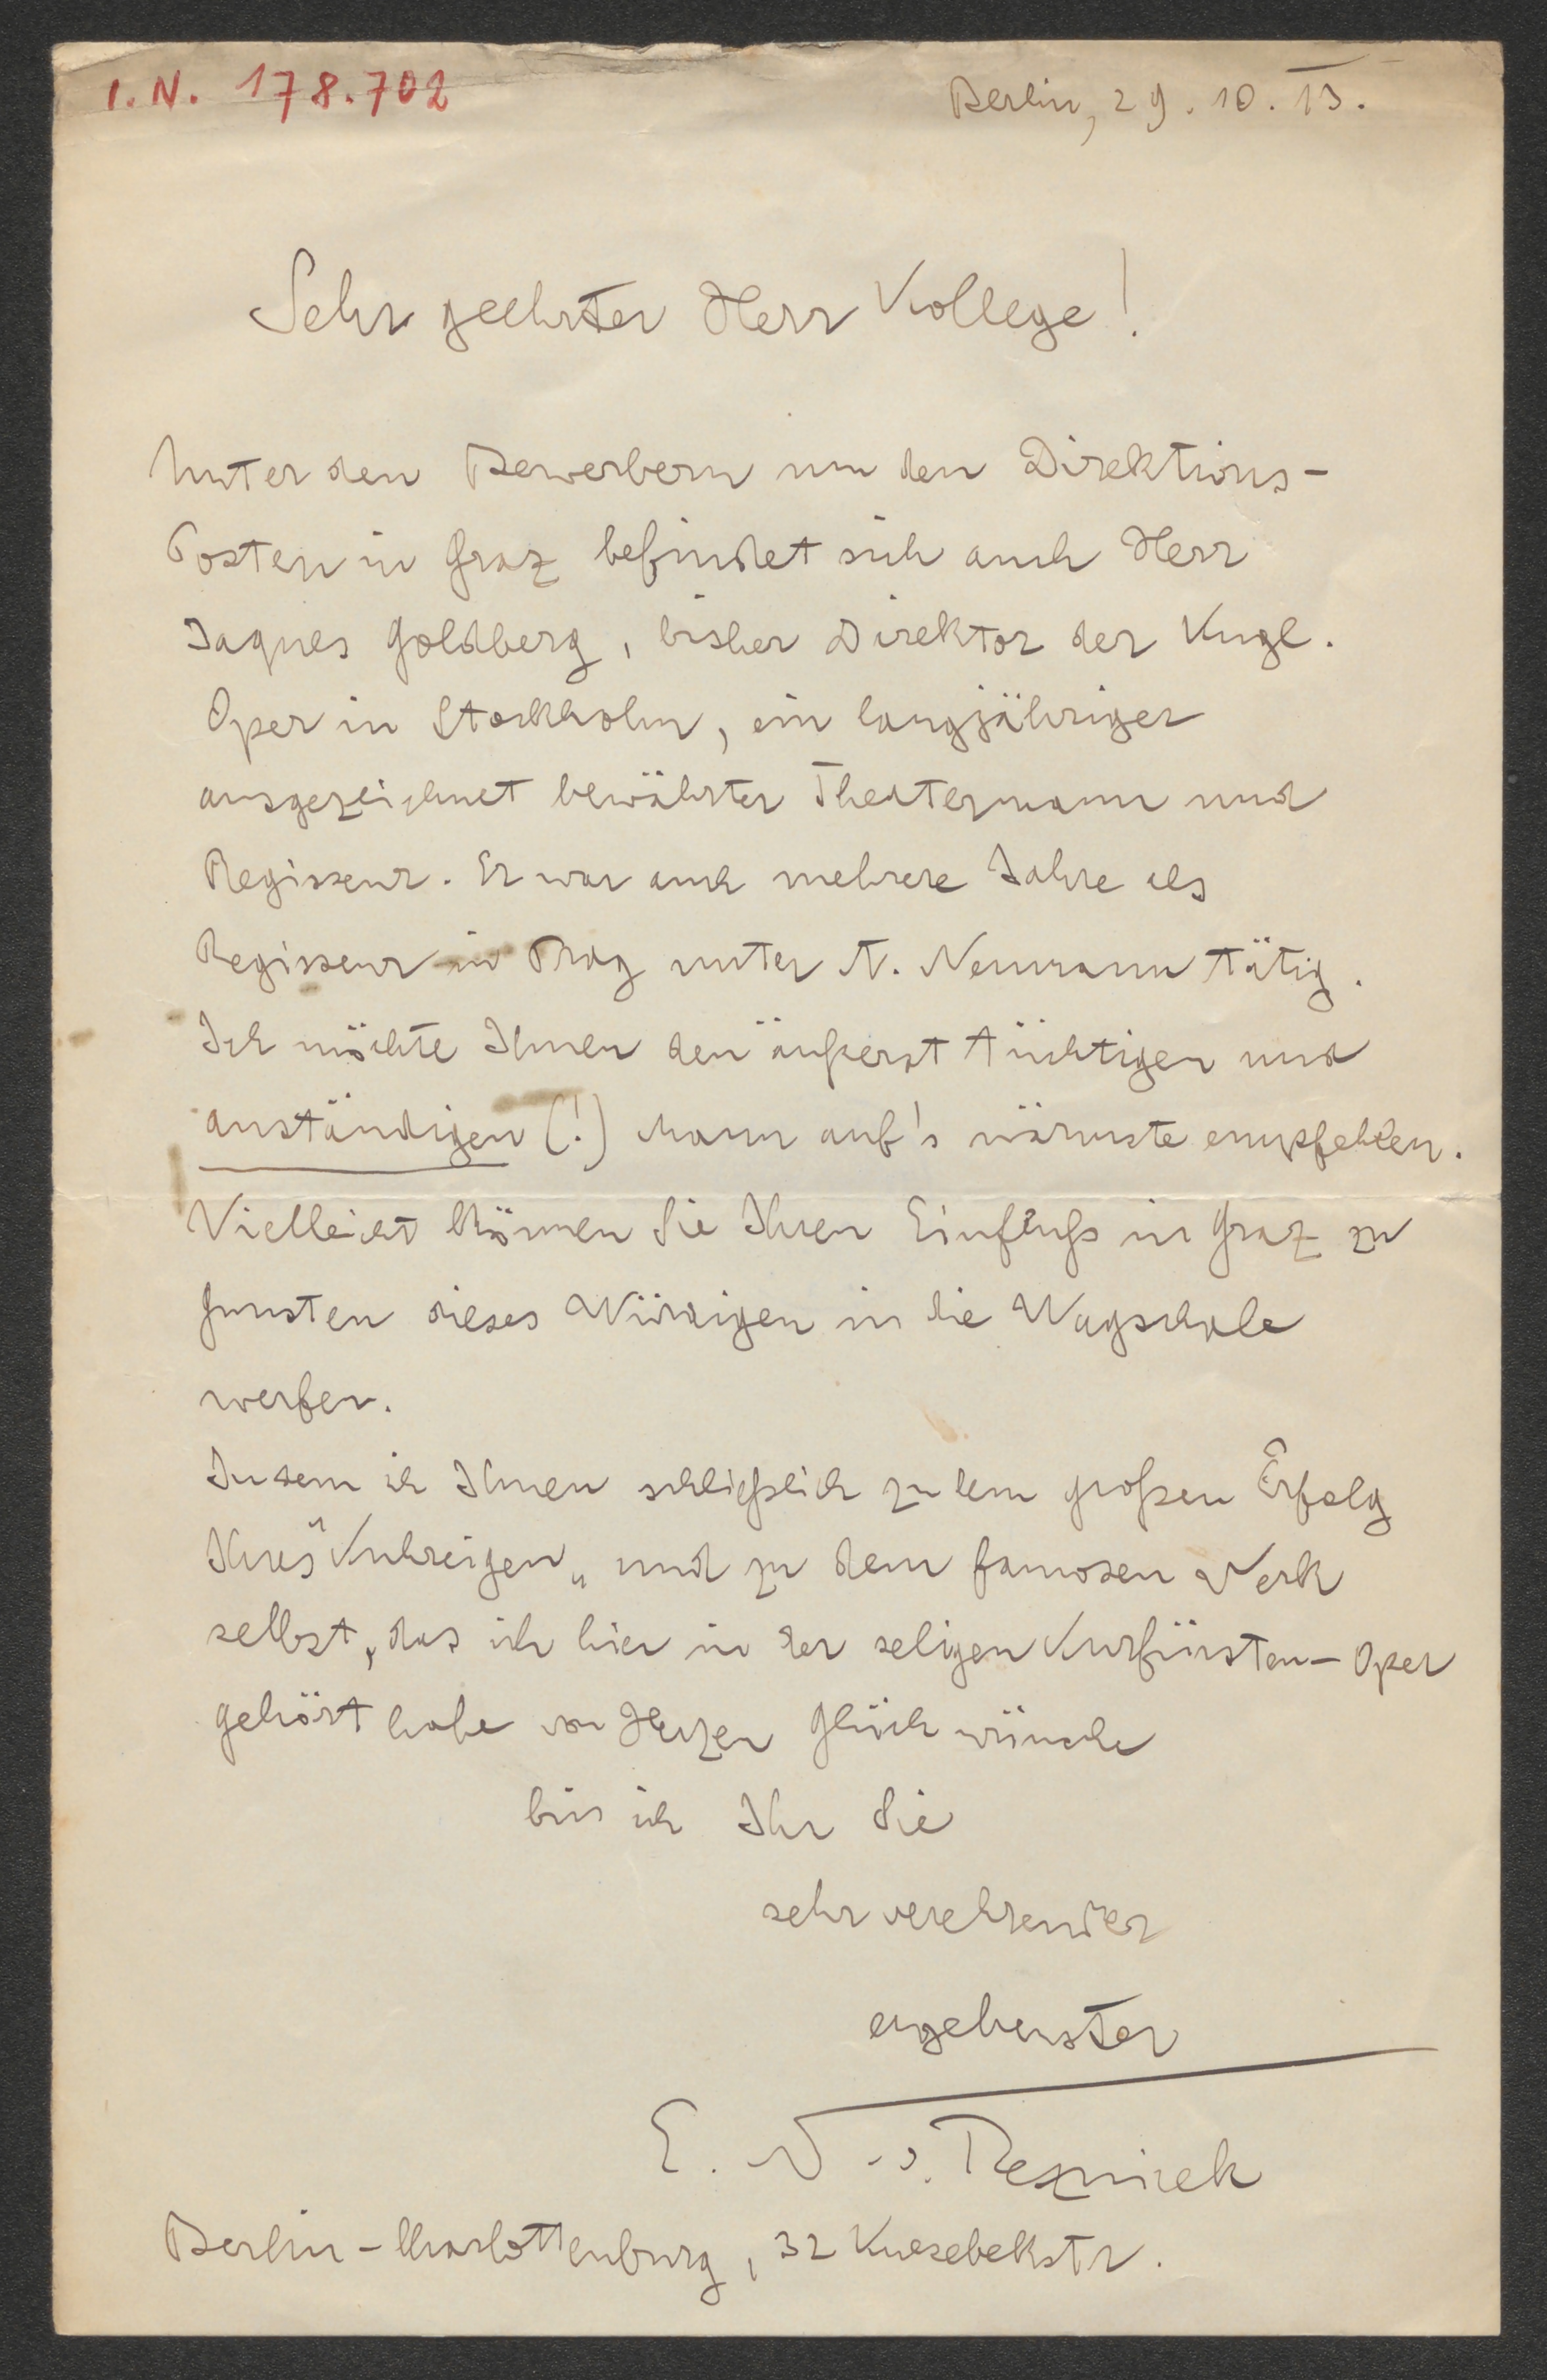 I.N. 178.702
Berlin, 29.10.13.
Sehr geehrter Herr Kollege!
Unter den Bewerbern um den Direktions-
Posten in Graz befindet sich auch Herr
Jaques Goldberg, bisher Direktor der Kngl.
Oper in Stockholm, ein langjähriger
ausgezeichnet bewährter Theatermann und
Regisseur. Er war auch mehrere Jahre als
Regisseur in Prag unter A. Neumann tätig.
Ich möchte Ihnen den äußerst tüchtigen und
anständigen (!) Mann auf's wärmste empfehlen.
Vielleicht können Sie Ihren Einfluß in Graz zu
Gunsten dieses Würdigen in die Wagschale
werfen.
Indem ich Ihnen schließlich zu dem großen Erfolg
Ihres "Kuhreigen„ und zu dem famosen Werk
selbst, das ich hier in der seligen Kurfürsten-Oper
gehört habe von Herzen Glück wünsche
bin ich Ihr Sie
sehr verehrender
ergebenster
E. N. v. Reznicek
Berlin-Charlottenburg, 32 Knesebekstr.